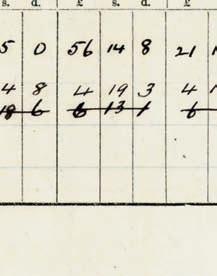 s. d. £ s. d. £
5 0 56 14 8 21 1
4 8 4 19 3 4 1
18 6 6 13 1 6